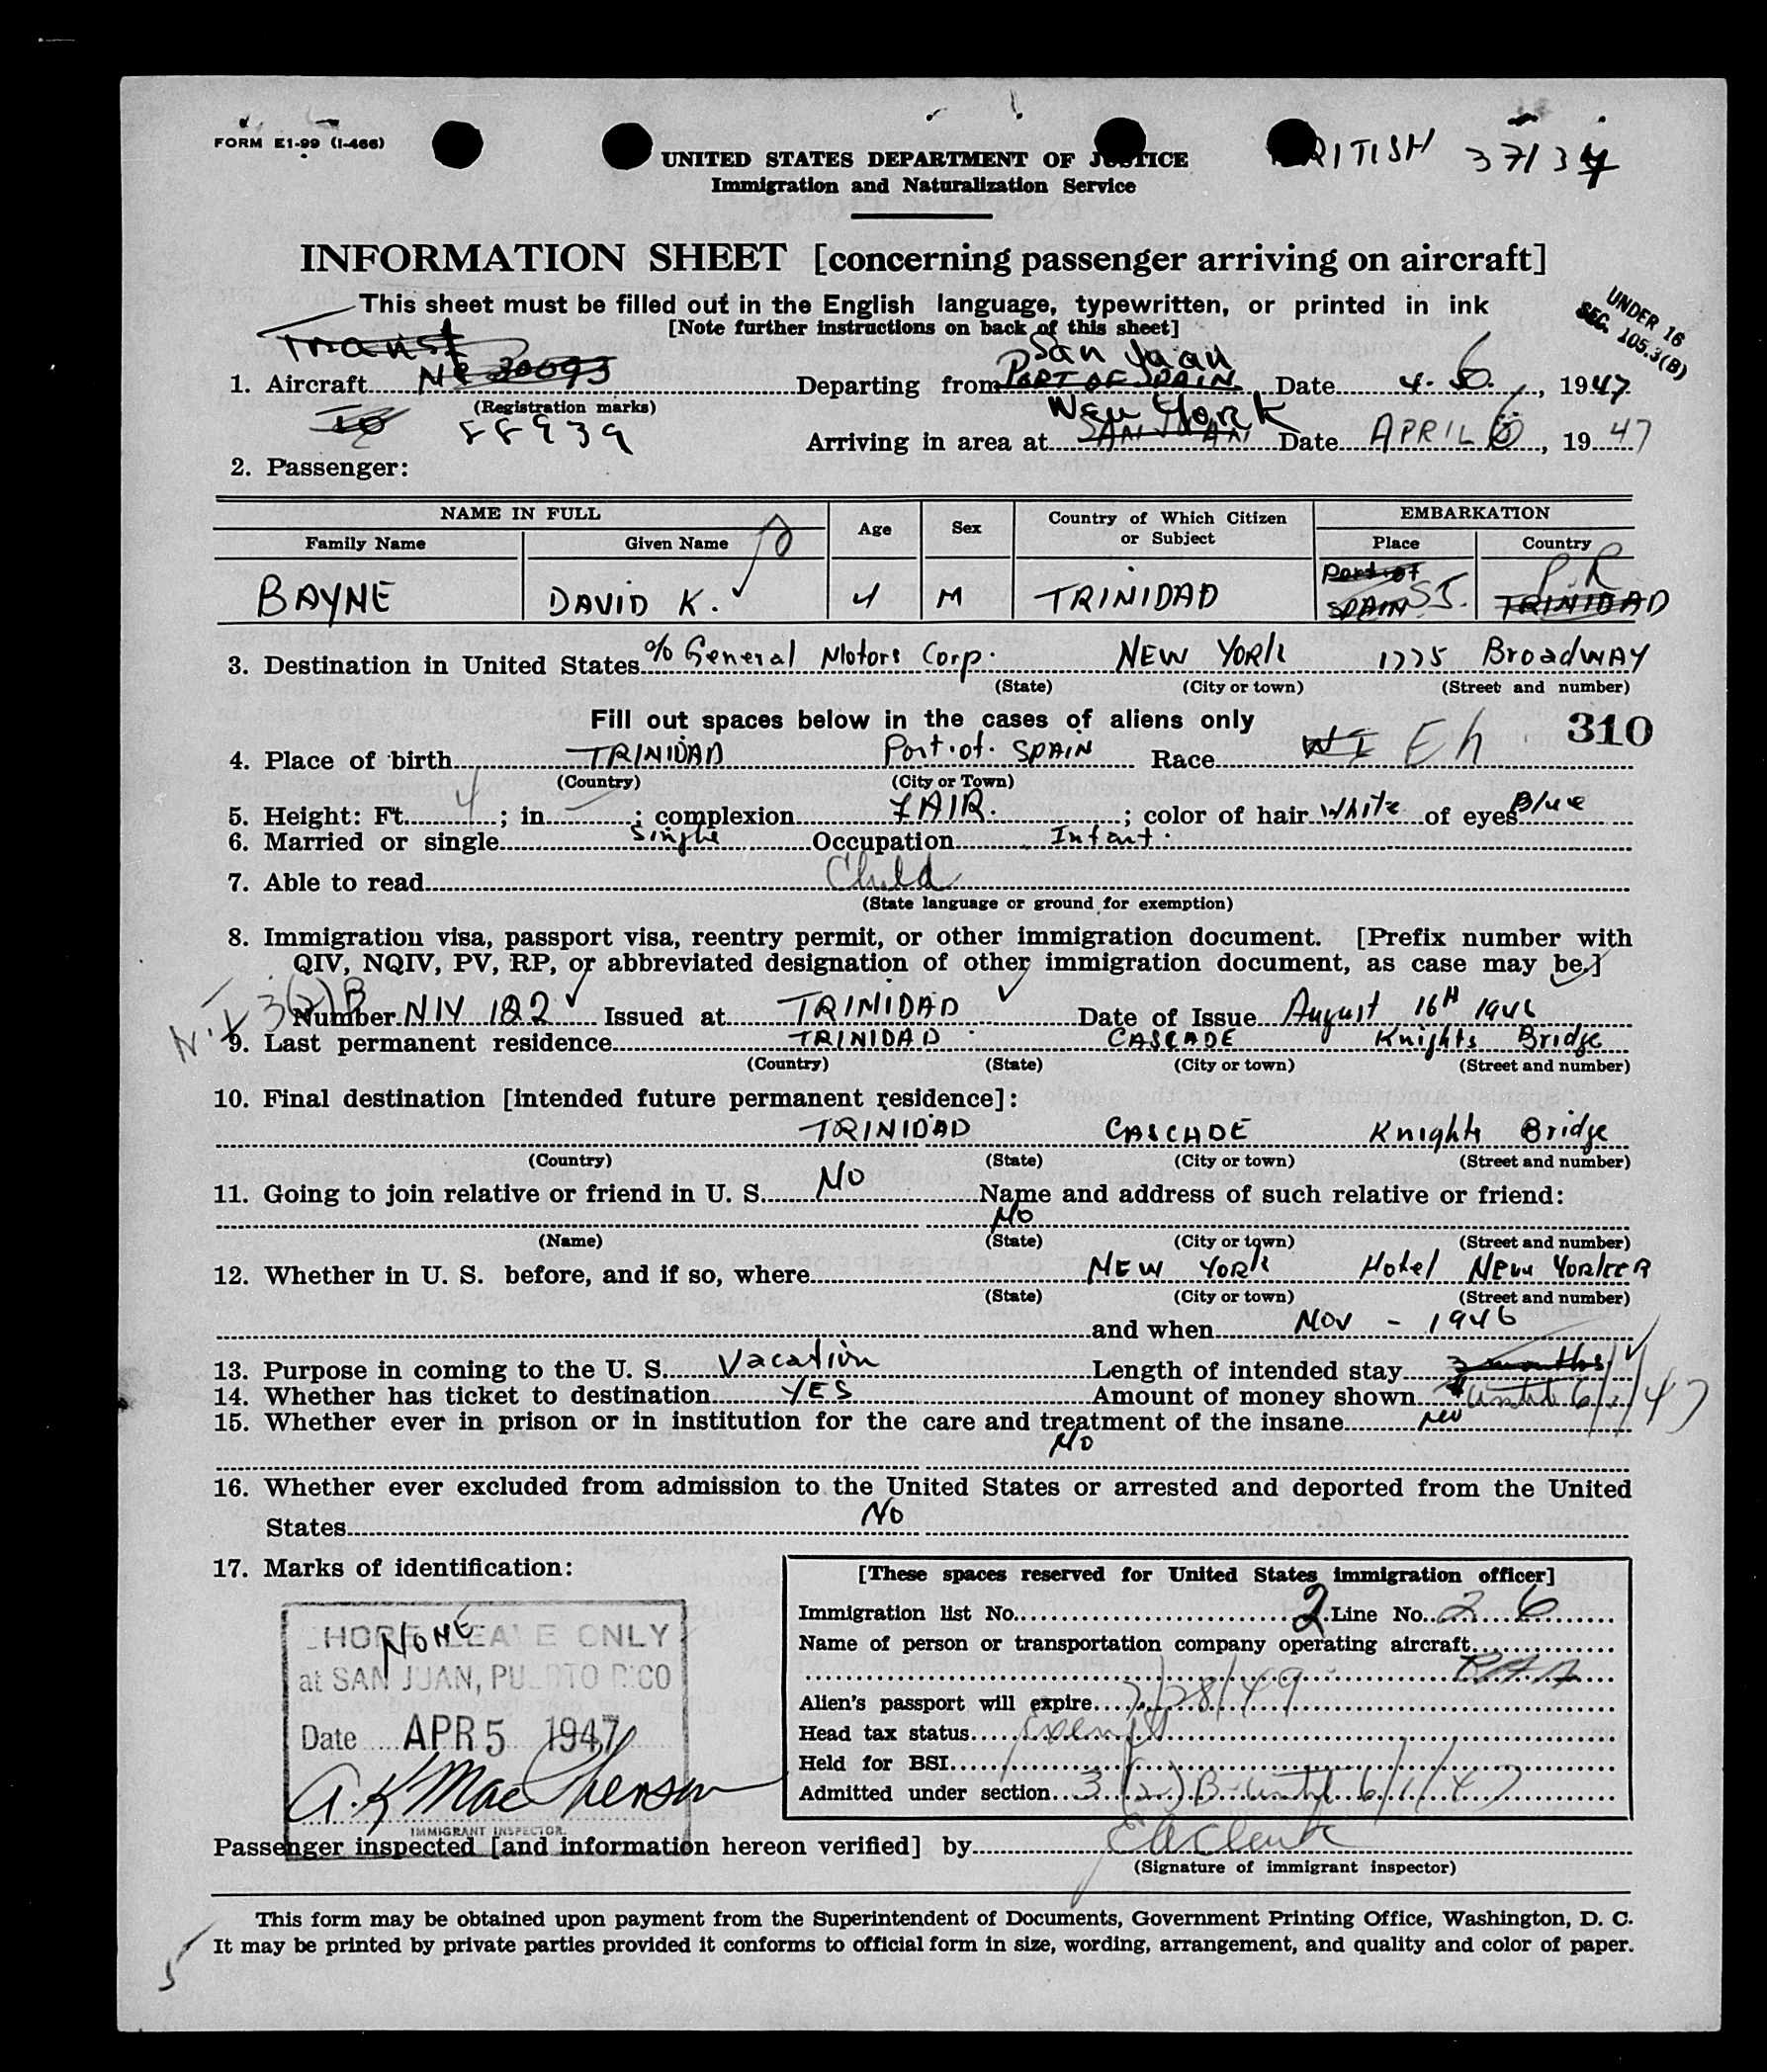 FORM E1-99 (I-466)
UNITED STATES DEPARTMENT OF JUSTICE
Immigration and Naturalization Service
BRITISH 37137
INFORMATION SHEET [concerning passenger arriving on aircraft]
This sheet must be filled out in the English language, typewritten, or printed in ink
[Note further instructions on back of this sheet]
UNDER 16
SEC. 105.3(B)
San Juan
1. Aircraft NC 30093 Departing from PORT OF SPAIN Date 4. 6. , 1947
(Registration marks)
88939
New York
Arriving in area at SAN JUAN Date APRIL 6, 1947
2. Passenger:
NAME IN FULL Age Sex Country of Which Citizen or Subject EMBARKATION
Family Name Given Name Place Country
BAYNE DAVID K. 4 M TRINIDAD Port of SPAIN S.J. P.R TRINIDAD
3. Destination in United States % General Motors Corp. NEW YORK 1775 BroadWAY
(State) (City or town) (Street and number)
Fill out spaces below in the cases of aliens only
310
4. Place of birth TRINIDAD Port of SPAIN Race W I Eh
(Country) (City or Town)
5. Height: Ft. 4 ; in. — ; complexion FAIR. ; color of hair White of eyes Blue
6. Married or single Single Occupation Infant.
7. Able to read Child
(State language or ground for exemption)
8. Immigration visa, passport visa, reentry permit, or other immigration document. [Prefix number with
QIV, NQIV, PV, RP, or abbreviated designation of other immigration document, as case may be.]
3(2)B
Number NIV 182 Issued at TRINIDAD Date of Issue August 16th 1946
9. Last permanent residence TRINIDAD CASCADE Knights Bridge
(Country) (State) (City or town) (Street and number)
10. Final destination [intended future permanent residence]:
TRINIDAD CASCADE Knights Bridge
(Country) (State) (City or town) (Street and number)
11. Going to join relative or friend in U. S. NO Name and address of such relative or friend:
NO
(Name) (State) (City or town) (Street and number)
12. Whether in U. S. before, and if so, where NEW YORK Hotel NEW YORKER
(State) (City or town) (Street and number)
and when NOV - 1946
13. Purpose in coming to the U. S. Vacation Length of intended stay 3 months
14. Whether has ticket to destination YES Amount of money shown until 6/1/47
15. Whether ever in prison or in institution for the care and treatment of the insane NO
NO
16. Whether ever excluded from admission to the United States or arrested and deported from the United
States NO
17. Marks of identification:
NONE
SHORE LEAVE ONLY
at SAN JUAN, PUERTO RICO
Date APR 5 1947
A. K MacPherson
IMMIGRANT INSPECTOR.
[These spaces reserved for United States immigration officer]
Immigration list No. 2 Line No. 26
Name of person or transportation company operating aircraft
PAA
Alien's passport will expire 7/28/49
Head tax status Exempt
Held for BSI
Admitted under section 3(2)B until 6/1/47
Passenger inspected [and information hereon verified] by E A Clark
(Signature of immigrant inspector)
This form may be obtained upon payment from the Superintendent of Documents, Government Printing Office, Washington, D. C.
It may be printed by private parties provided it conforms to official form in size, wording, arrangement, and quality and color of paper.
5